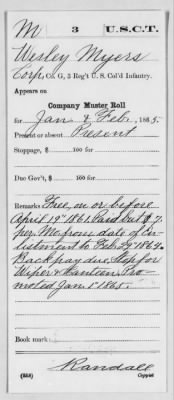 M 3 U.S.C.T.
Wesley Myers
Corp., Co. G, 3 Reg't U. S. Col'd Infantry.
Appears on
Company Muster Roll
for Jan & Feb, 1865.
Present or absent Present
Stoppage, $ 100 for
Due Gov't, $ 100 for
Remarks Free on or before
April 19" 1861. Paid but $7
per Mo. from date of en-
listment to Feb. 29 1864.
Back pay due. Stop for
Wiper & Canteen. Pro-
moted Jan. 1" 1865.
Book mark:
Randall
(858) Copyist.